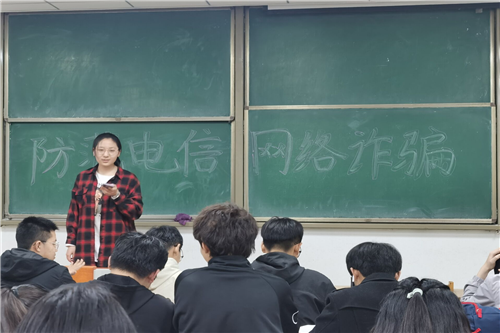 防范电信网络诈骗